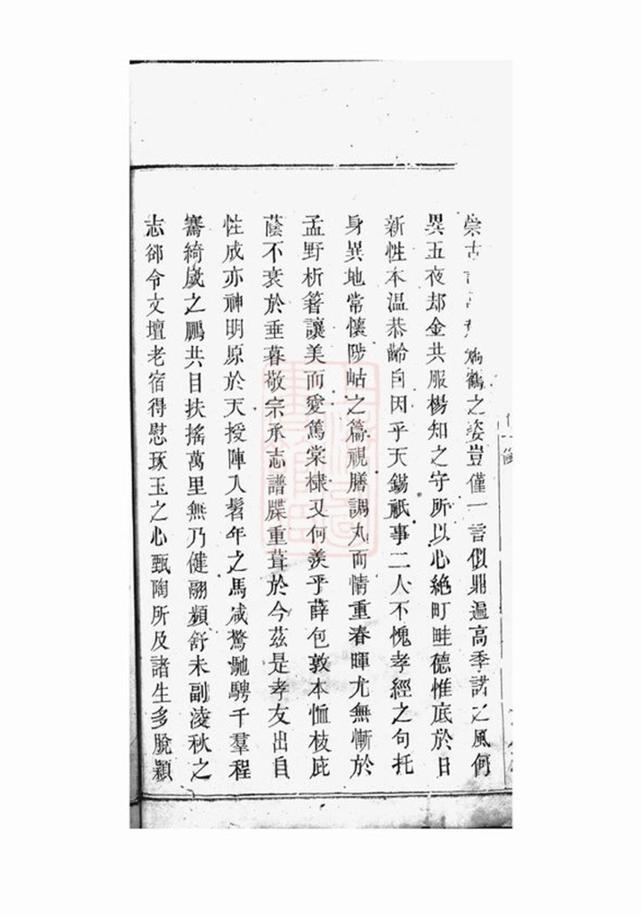 崇古言鶴之姿豈僅一言似鼎遍高季諾之風何
異五夜却金共服楊知之守所以心絶町畦德惟底於日
新性本温恭齡自因乎天錫祇事二人不愧孝經之句托
身異地常懷陟岵之篇視膳調丸而情重春暉尤無慚於
孟野析箸讓美而愛篤棠棣又何羨乎薛包敦本恤枝庇
蔭不衰於垂暮敬宗承志譜牒重葺於今茲是孝友出自
性成亦神明原於天授陣入髫年之馬咸驚馳騁千羣程
騫綺歲之鵬共目扶搖萬里無乃健翮頻舒未副凌秋之
志郤令文壇老宿得慰琢玉之心甄陶所及諸生多脫穎